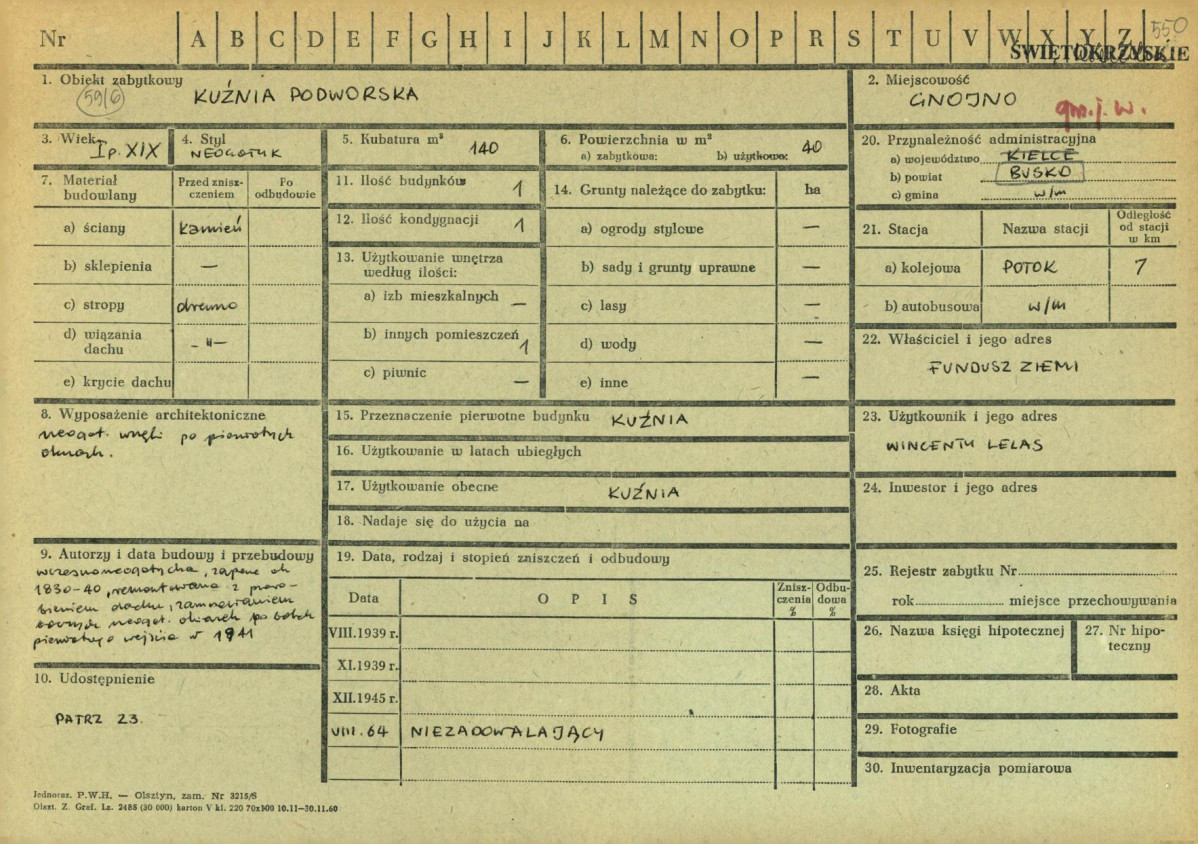 Nr A B C D E F G H I J K L M N O P R S T U V W X Y Z 550
ŚWIĘTOKRZYSKIE
1. Obiekt zabytkowy
5916
KUŹNIA PODWORSKA
2. Miejscowość
GNOJNO
gm. j. w.
3. Wiek
I p. XIX
4. Styl
NEOGOTYK
5. Kubatura m³
140
6. Powierzchnia w m²
a) zabytkowa: b) użytkowa: 40
20. Przynależność administracyjna
a) województwo KIELCE
b) powiat BUSKO
c) gmina w/m
7. Materiał budowlany
Przed zniszczeniem
Po odbudowie
a) ściany kamień
b) sklepienia —
c) stropy drewno
d) wiązania dachu -"-
e) krycie dachu
11. Ilość budynków 1
12. Ilość kondygnacji 1
13. Użytkowanie wnętrza według ilości:
a) izb mieszkalnych —
b) innych pomieszczeń 1
c) piwnic —
14. Grunty należące do zabytku: ha
a) ogrody stylowe —
b) sady i grunty uprawne —
c) lasy —
d) wody —
e) inne —
21. Stacja Nazwa stacji Odległość od stacji w km
a) kolejowa POTOK 7
b) autobusowa w/m
22. Właściciel i jego adres
FUNDUSZ ZIEMI
8. Wyposażenie architektoniczne
neogot. wnęki po pierwotnych
oknach.
15. Przeznaczenie pierwotne budynku KUŹNIA
16. Użytkowanie w latach ubiegłych
17. Użytkowanie obecne KUŹNIA
18. Nadaje się do użycia na
23. Użytkownik i jego adres
WINCENTY LELAS
24. Inwestor i jego adres
9. Autorzy i data budowy i przebudowy
wczesnoneogotycka, zapewne ok
1830-40, remontowana z
dachu, zamurowaniem
neogot. okienek po bokach
pierwotnego wejścia w 1941
10. Udostępnienie
PATRZ 23.
19. Data, rodzaj i stopień zniszczeń i odbudowy
Data O P I S Zniszczenia % Odbudowa %
VIII.1939 r.
XI.1939 r.
XII.1945 r.
VIII.64 NIEZADOWALAJĄCY
25. Rejestr zabytku Nr
rok miejsce przechowywania
26. Nazwa księgi hipotecznej
27. Nr hipoteczny
28. Akta
29. Fotografie
30. Inwentaryzacja pomiarowa
Jednoraz. P.W.H. — Olsztyn, zam. Nr 3215/S
Olszt. Z. Graf. Lz. 2485 (30 000) karton V kl. 220 70x100 10.11—30.11.60